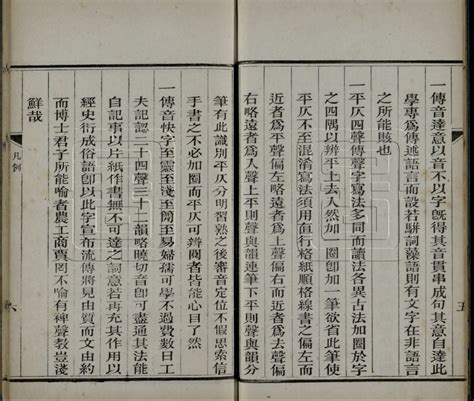 一傳音達意以音不以字旣得其音貫串成句其意自達此
學專爲傳述語言而設若駢詞藻語則有文字在非語言
之所能賅也
一平仄四聲傳聲字寫法多同而讀法各異古法加圈於字
之四隅以辨平上去入然加一圈卽加一筆欲省此筆使
平仄不至混淆寫法須用直行格紙順格線書之偏左而
近者爲平聲偏左略遠者爲上聲偏右而近者爲去聲偏
右略遠者爲入聲上平則聲與韻連筆下平則聲與韻分
筆有此識別平仄分明習熟之後審音定位不假思索信
手書之不必加圈而平仄可辨閱者皆能心目了然
一傳音快字至靈至淺至簡至易婦孺可學不過費數日工
夫記認二十四聲三十二韻略曉切音卽可盡通其法能
自記事以片紙作書無不可達之詞意若再充其作用以
經史衍成俗語卽以此字宣布流傳將見由質而文由約
而博士君子所能喻者農工商賈罔不喻有裨聲敎豈淺
鮮哉
凡例
五